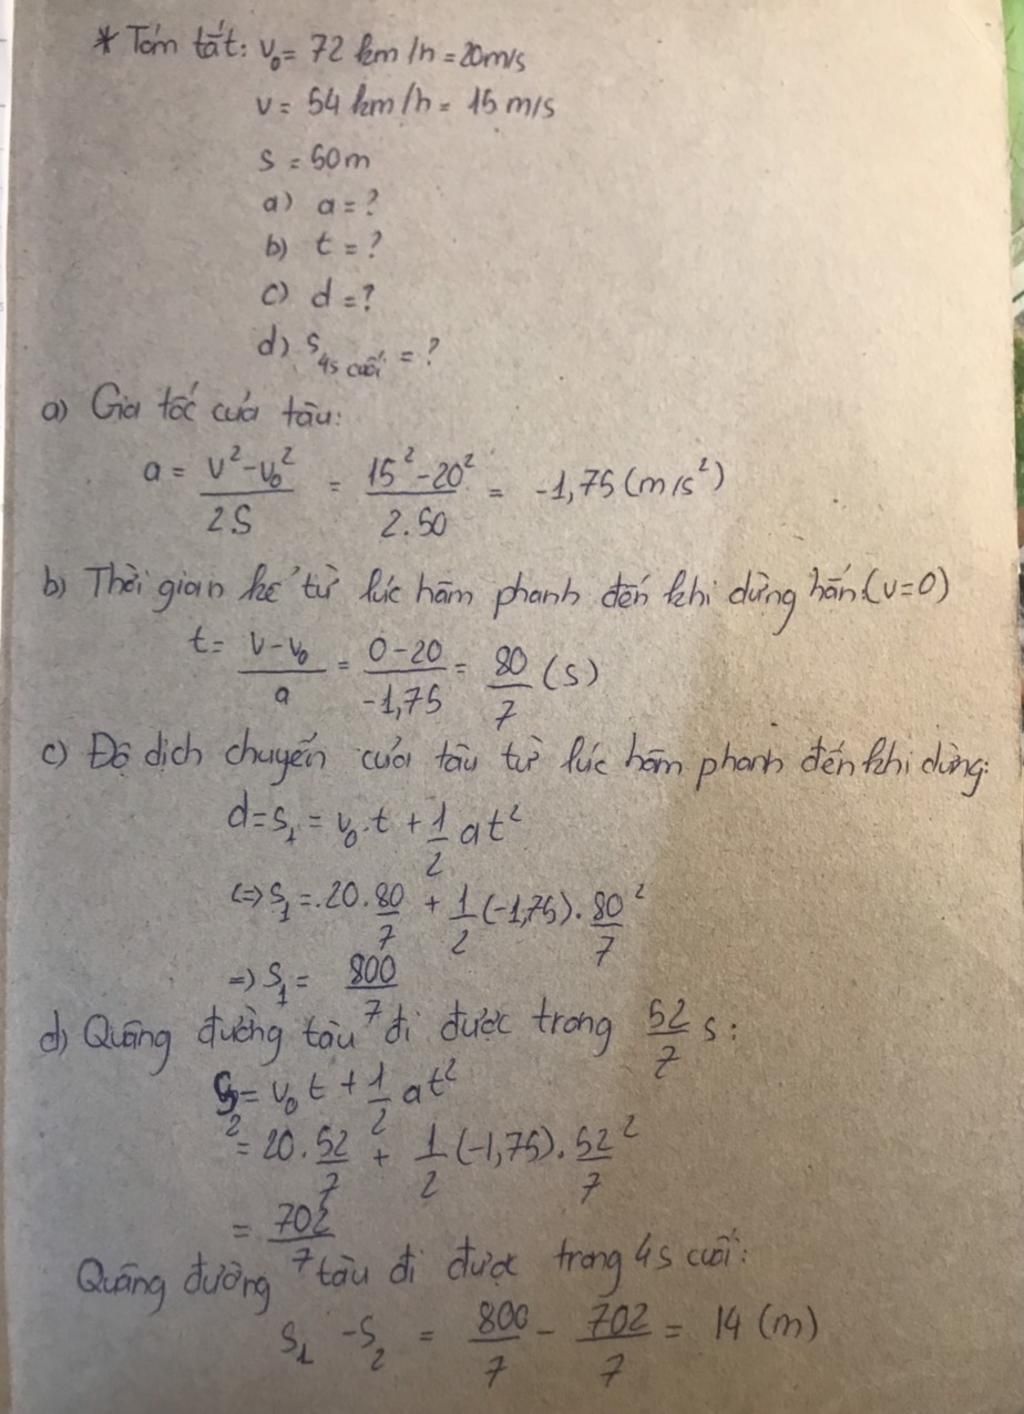 * Tóm tắt: v₀ = 72 km/h = 20m/s
v = 54 km/h = 15 m/s
s = 50m
a) a = ?
b) t = ?
c) d = ?
d) S 4s cuối = ?
a) Gia tốc của tàu:
a = (v² - v₀²)/(2S) = (15² - 20²)/(2.50) = -1,75 (m/s²)
b) Thời gian kể từ lúc hãm phanh đến khi dừng hẳn (v=0)
t = (v - v₀)/a = (0 - 20)/(-1,75) = 80/7 (s)
c) Độ dịch chuyển của tàu từ lúc hãm phanh đến khi dừng:
d = S₁ = v₀.t + 1/2 at²
<=> S₁ = 20.80/7 + 1/2 (-1,75). 80²/7
=> S₁ = 800/7
d) Quãng đường tàu đi được trong 52/7 s:
S₂ = v₀ t + 1/2 at²
= 20.52/7 + 1/2 (-1,75). 52²/7
= 702/7
Quãng đường tàu đi được trong 4s cuối:
S₁ - S₂ = 800/7 - 702/7 = 14 (m)